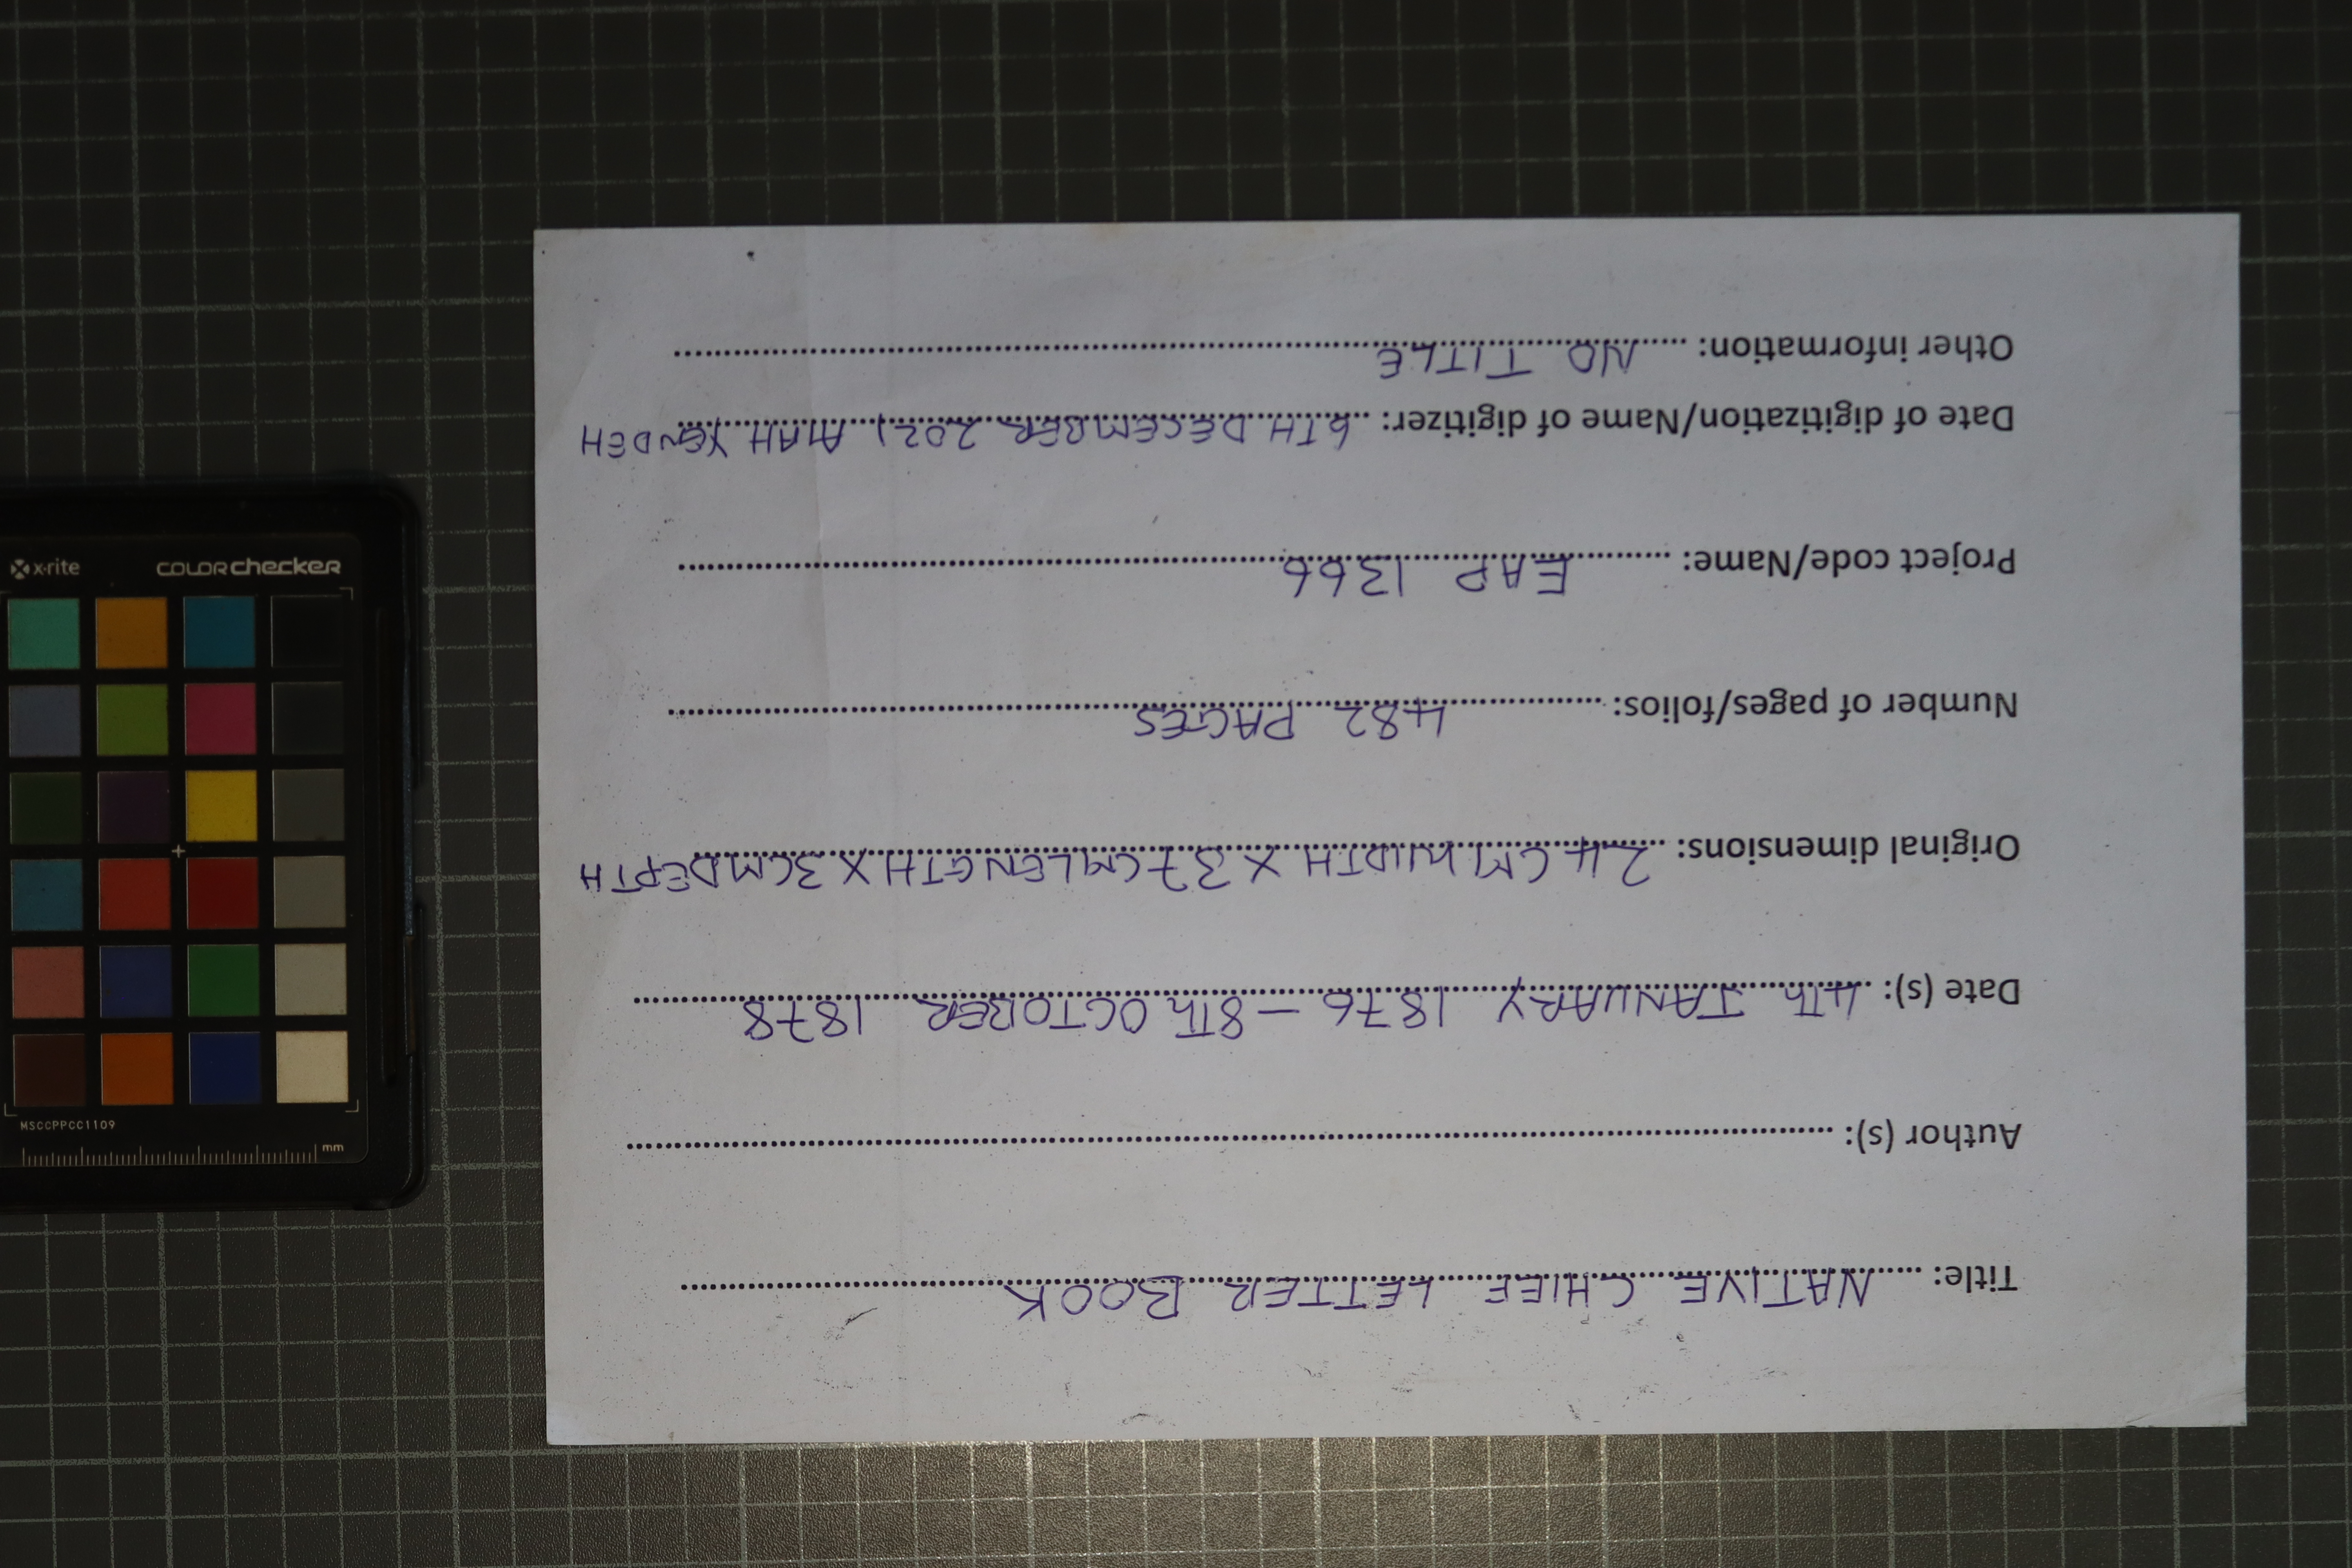 Title: NATIVE CHIEF LETTER BOOK
Author (s):
Date (s): 4Th JANUARY 1876 – 8Th OCTOBER 1878
Original dimensions: 24CM WIDTH X 37CM LENGTH X 3CM DEPTH
Number of pages/folios: 482 PAGES
Project code/Name: EAP 1366
Date of digitization/Name of digitizer: 6TH DECEMBER 2021 AIAH YENDEH
Other information: NO TITLE
x-rite colorchecker
MSCCPPCC1109
mm